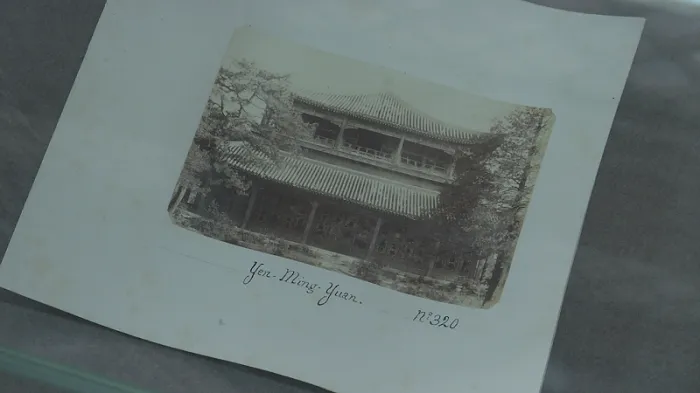 Yen-Ming-Yuan.
Nº 320